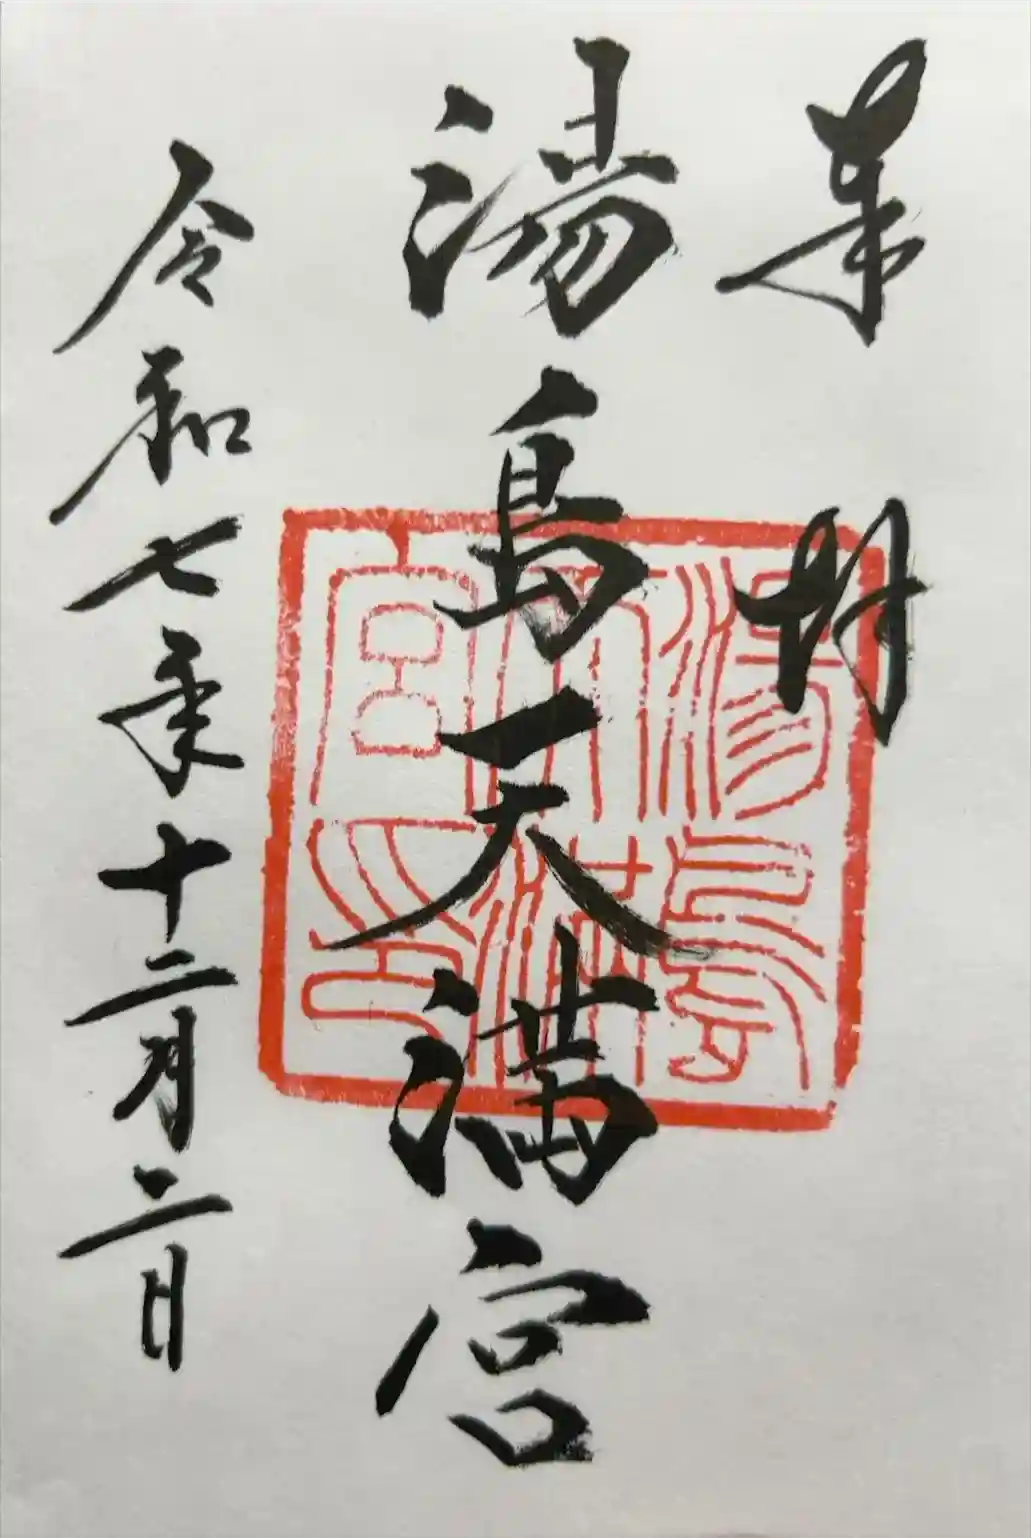 奉拝
湯島天満宮
令和七年十二月二日
湯島天満宮印